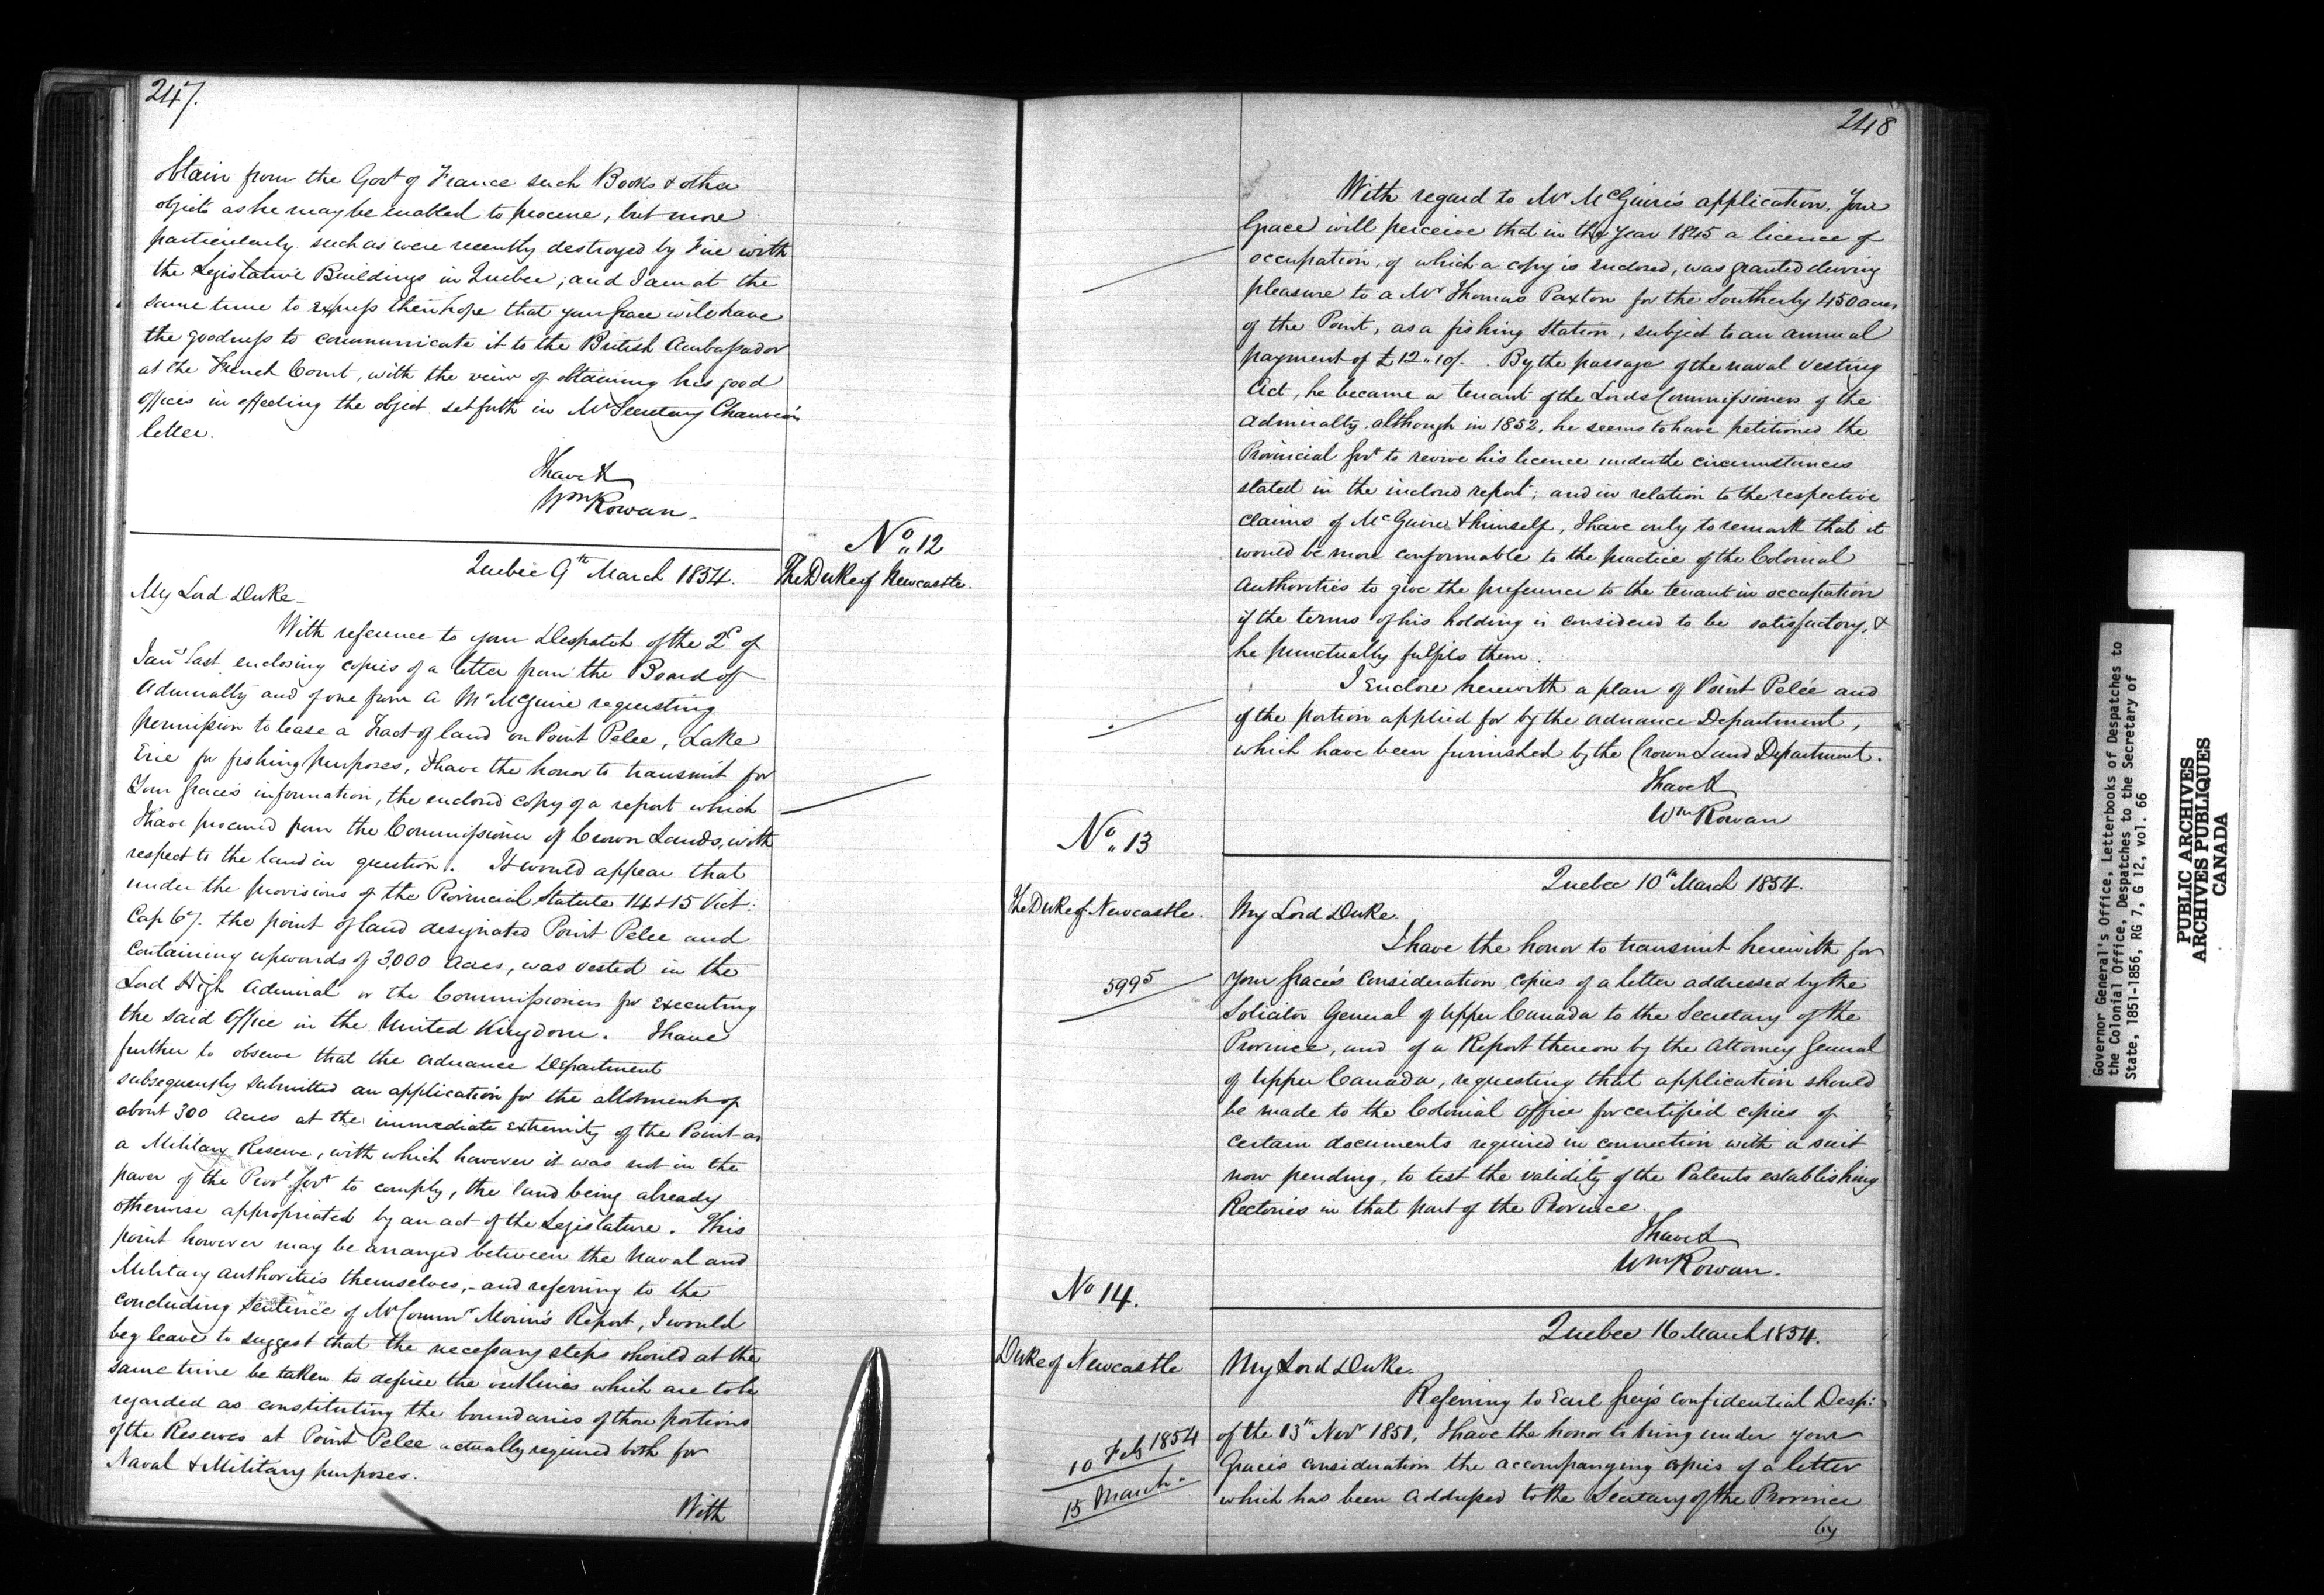 247.
obtain from the Govt of France such Books & other
objects as he may be enabled to procure, but more
particularly such as were recently destroyed by Fire with
the Legislative Buildings in Quebec; and I am at the
same time to express their hope that your Grace will have
the goodness to communicate it to the British Ambassador
at the French Court, with the view of obtaining his good
offices in effecting the object set forth in Mr Secretary Chauveau's
letter.
I have &
Wm Rowan.
No 12
The Duke of Newcastle.
Quebec 9th March 1854.
My Lord Duke
With reference to your Despatch of the 2d of
Jany last enclosing copies of a letter from the Board of
Admiralty and of one from a Mr McGuire requesting
permission to lease a Tract of land on Point Pelee, Lake
Erie for fishing purposes, I have the honor to transmit for
Your Grace's information, the enclosed copy of a report which
I have procured from the Commissioner of Crown Lands, with
respect to the land in question. It would appear that
under the provisions of the Provincial Statute 14 & 15 Vict:
Cap 67. the point of land designated Point Pelee and
containing upwards of 3,000 Acres, was vested in the
Lord High Admiral or the Commissioners for executing
the said Office in the United Kingdom. I have
further to observe that the Ordnance Department
subsequently submitted an application for the allotment of
about 300 Acres at the immediate extremity of the Point as
a Military Reserve, with which however it was not in the
power of the Provl Govt to comply, the land being already
otherwise appropriated by an act of the Legislature. This
point however may be arranged between the Naval and
Military authorities themselves,- and referring to the
concluding sentence of Mr Commr Morin's Report, I would
beg leave to suggest that the necessary steps should at the
same time be taken to define the outlines which are to be
regarded as constituting the boundaries of those portions
of the Reserves at Point Pelee actually required both for
Naval & Military purposes.
With
248
With regard to Mr McGuire's application, Your
Grace will perceive that in the year 1845 a licence of
occupation, of which a copy is enclosed, was granted during
pleasure to a Mr Thomas Paxton for the Southerly 450 acres
of the Point, as a fishing Station, subject to an annual
payment of £12 " 10/. . By the passage of the naval vesting
Act, he became a tenant of the Lords Commissioners of the
Admiralty, although in 1852, he seems to have petitioned the
Provincial Govt to revive his licence under the circumstances
stated in the inclosed report; and in relation to the respective
claims of McGuire & himself, I have only to remark that it
would be more conformable to the practice of the Colonial
Authorities to give the preference to the tenant in occupation
if the terms of his holding is considered to be satisfactory, &
he punctually fulfils them.
I Enclose herewith a plan of Point Pelée and
of the portion applied for by the Ordnance Department,
which have been furnished by the Crown Land Department.
I have &
Wm Rowan
No 13
Quebec 10th March 1854.
The Duke of Newcastle.
My Lord Duke.
I have the honor to transmit herewith for
5995
Your Grace's consideration, copies of a letter addressed by the
Solicitor General of Upper Canada to the Secretary of the
Province, and of a Report thereon by the Attorney General
of Upper Canada, requesting that application should
be made to the Colonial Office for certified copies of
certain documents required in connection with a suit
now pending, to test the validity of the Patents establishing
Rectories in that part of the Province.
I have &
Wm Rowan.
No 14.
Quebec 16 March 1854.
Duke of Newcastle
My Lord Duke.
Referring to Earl Grey's confidential Desp:
10 Feb 1854
15 March
of the 13th Novr 1851, I have the honor to bring under your
Grace's consideration the accompanying copies of a letter
which has been addressed to the Secretary of the Province
by
Governor General's Office, Letterbooks of Despatches to
the Colonial Office, Despatches to the Secretary of
State, 1851-1856, RG 7, G 12, vol. 66
PUBLIC ARCHIVES
ARCHIVES PUBLIQUES
CANADA